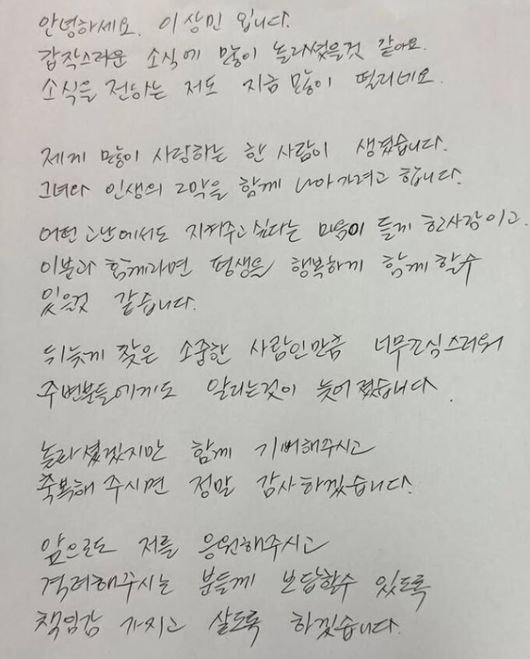 안녕하세요. 이상민 입니다.
갑작스러운 소식에 많이 놀라셨을것 같아요.
소식을 전하는 저도 지금 많이 떨리네요.
제게 많이 사랑하는 한 사람이 생겼습니다.
그녀와 인생의 2막을 함께 나아가려고 합니다.
어떤 고난에서도 지켜주고 싶다는 마음이 들게 한 사람이고.
이분과 함께라면 평생을 행복하게 함께 할수
있을것 같습니다.
뒤늦게 찾은 소중한 사람인만큼 너무 조심스러워
주변분들에게도 알리는것이 늦어졌습니다.
놀라셨겠지만 함께 기뻐해주시고
축복해 주시면 정말 감사하겠습니다.
앞으로도 저를 응원해주시고
격려해주시는 분들께 보답할수 있도록
책임감 가지고 살도록 하겠습니다.